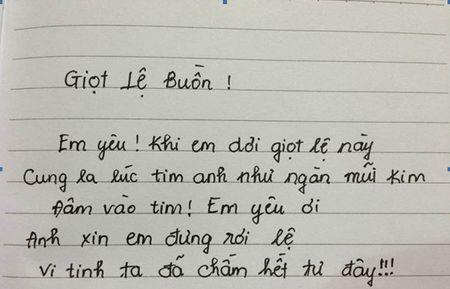 Giọt Lệ Buồn !
Em yêu ! Khi em dơi giọt lệ này
Cung la lúc tim anh như ngàn mũi kim
Đâm vào tim! Em yêu ơi
Anh xin em đưng rơi lệ
Vi tinh ta đã chấm hết tư đây!!!